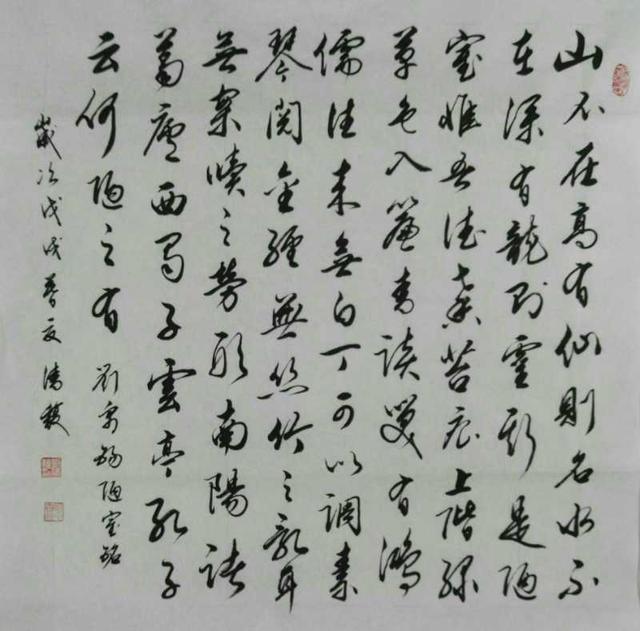 山不在高有仙則名水不
在深有龍則靈斯是陋
室惟吾德馨苔痕上階綠
草色入簾青談笑有鴻
儒往來無白丁可以調素
琴閱金經無絲竹之亂耳
無案牘之勞形南陽諸
葛廬西蜀子雲亭孔子
云何陋之有 劉禹錫陋室銘
歲次戊戌春